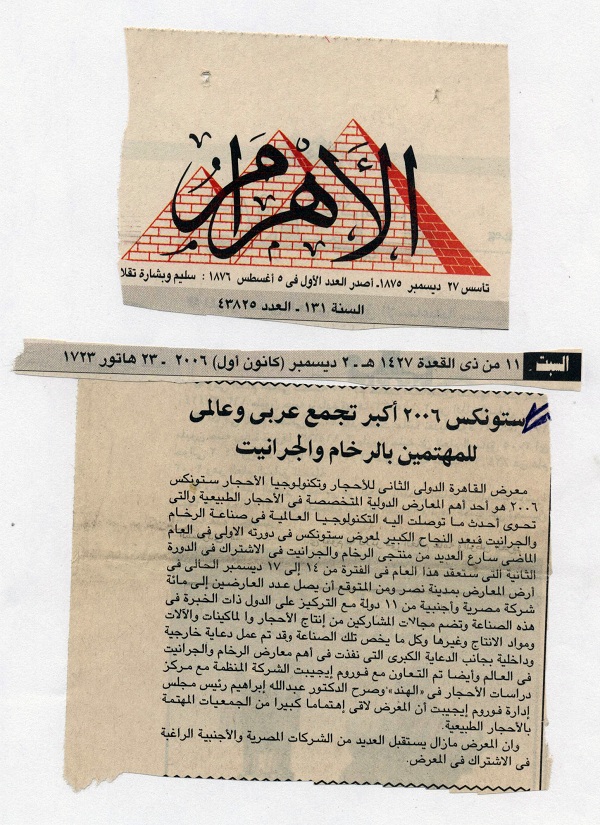 الأهرام
تأسس ٢٧ ديسمبر ١٨٧٥ـ أصدر العدد الأول فى ٥ أغسطس ١٨٧٦ : سليم وبشارة تقلا
السنة ١٣١ ـ العدد ٤٣٨٢٥
السبت ١١ من ذى القعدة ١٤٢٧ هـ ـ ٢ ديسمبر (كانون أول) ٢٠٠٦ ـ ٢٣ هاتور ١٧٢٣
ستونكس ٢٠٠٦ أكبر تجمع عربى وعالمى
للمهتمين بالرخام والجرانيت
معرض القاهرة الدولى الثانى للأحجار وتكنولوجيا الأحجار ستونكس
٢٠٠٦ هو أحد أهم المعارض الدولية المتخصصة فى الأحجار الطبيعية والتى
تحوى أحدث ما توصلت اليه التكنولوجيا العالمية فى صناعة الرخام
والجرانيت فبعد النجاح الكبير لمعرض ستونكس فى دورته الاولى فى العام
الماضى سارع العديد من منتجى الرخام والجرانيت فى الاشتراك فى الدورة
الثانية التى ستعقد هذا العام فى الفترة من ١٤ إلى ١٧ ديسمبر الحالى فى
أرض المعارض بمدينة نصر ومن المتوقع أن يصل عدد العارضين إلى مائة
شركة مصرية وأجنبية من ١١ دولة مع التركيز على الدول ذات الخبرة فى
هذه الصناعة وتضم مجالات المشاركين من إنتاج الأحجار وا لماكينات والآلات
ومواد الانتاج وغيرها وكل ما يخص تلك الصناعة وقد تم عمل دعاية خارجية
وداخلية بجانب الدعاية الكبرى التى نفذت فى أهم معارض الرخام والجرانيت
فى العالم وأيضا تم التعاون مع فوروم إيجيبت الشركة المنظمة مع مركز
دراسات الأحجار فى «الهند» وصرح الدكتور عبدالله إبراهيم رئيس مجلس
إدارة فوروم إيجيبت أن المعرض لاقى إهتماما كبيرا من الجمعيات المهتمة
بالأحجار الطبيعية.
وان المعرض مازال يستقبل العديد من الشركات المصرية والأجنبية الراغبة
فى الاشتراك فى المعرض.